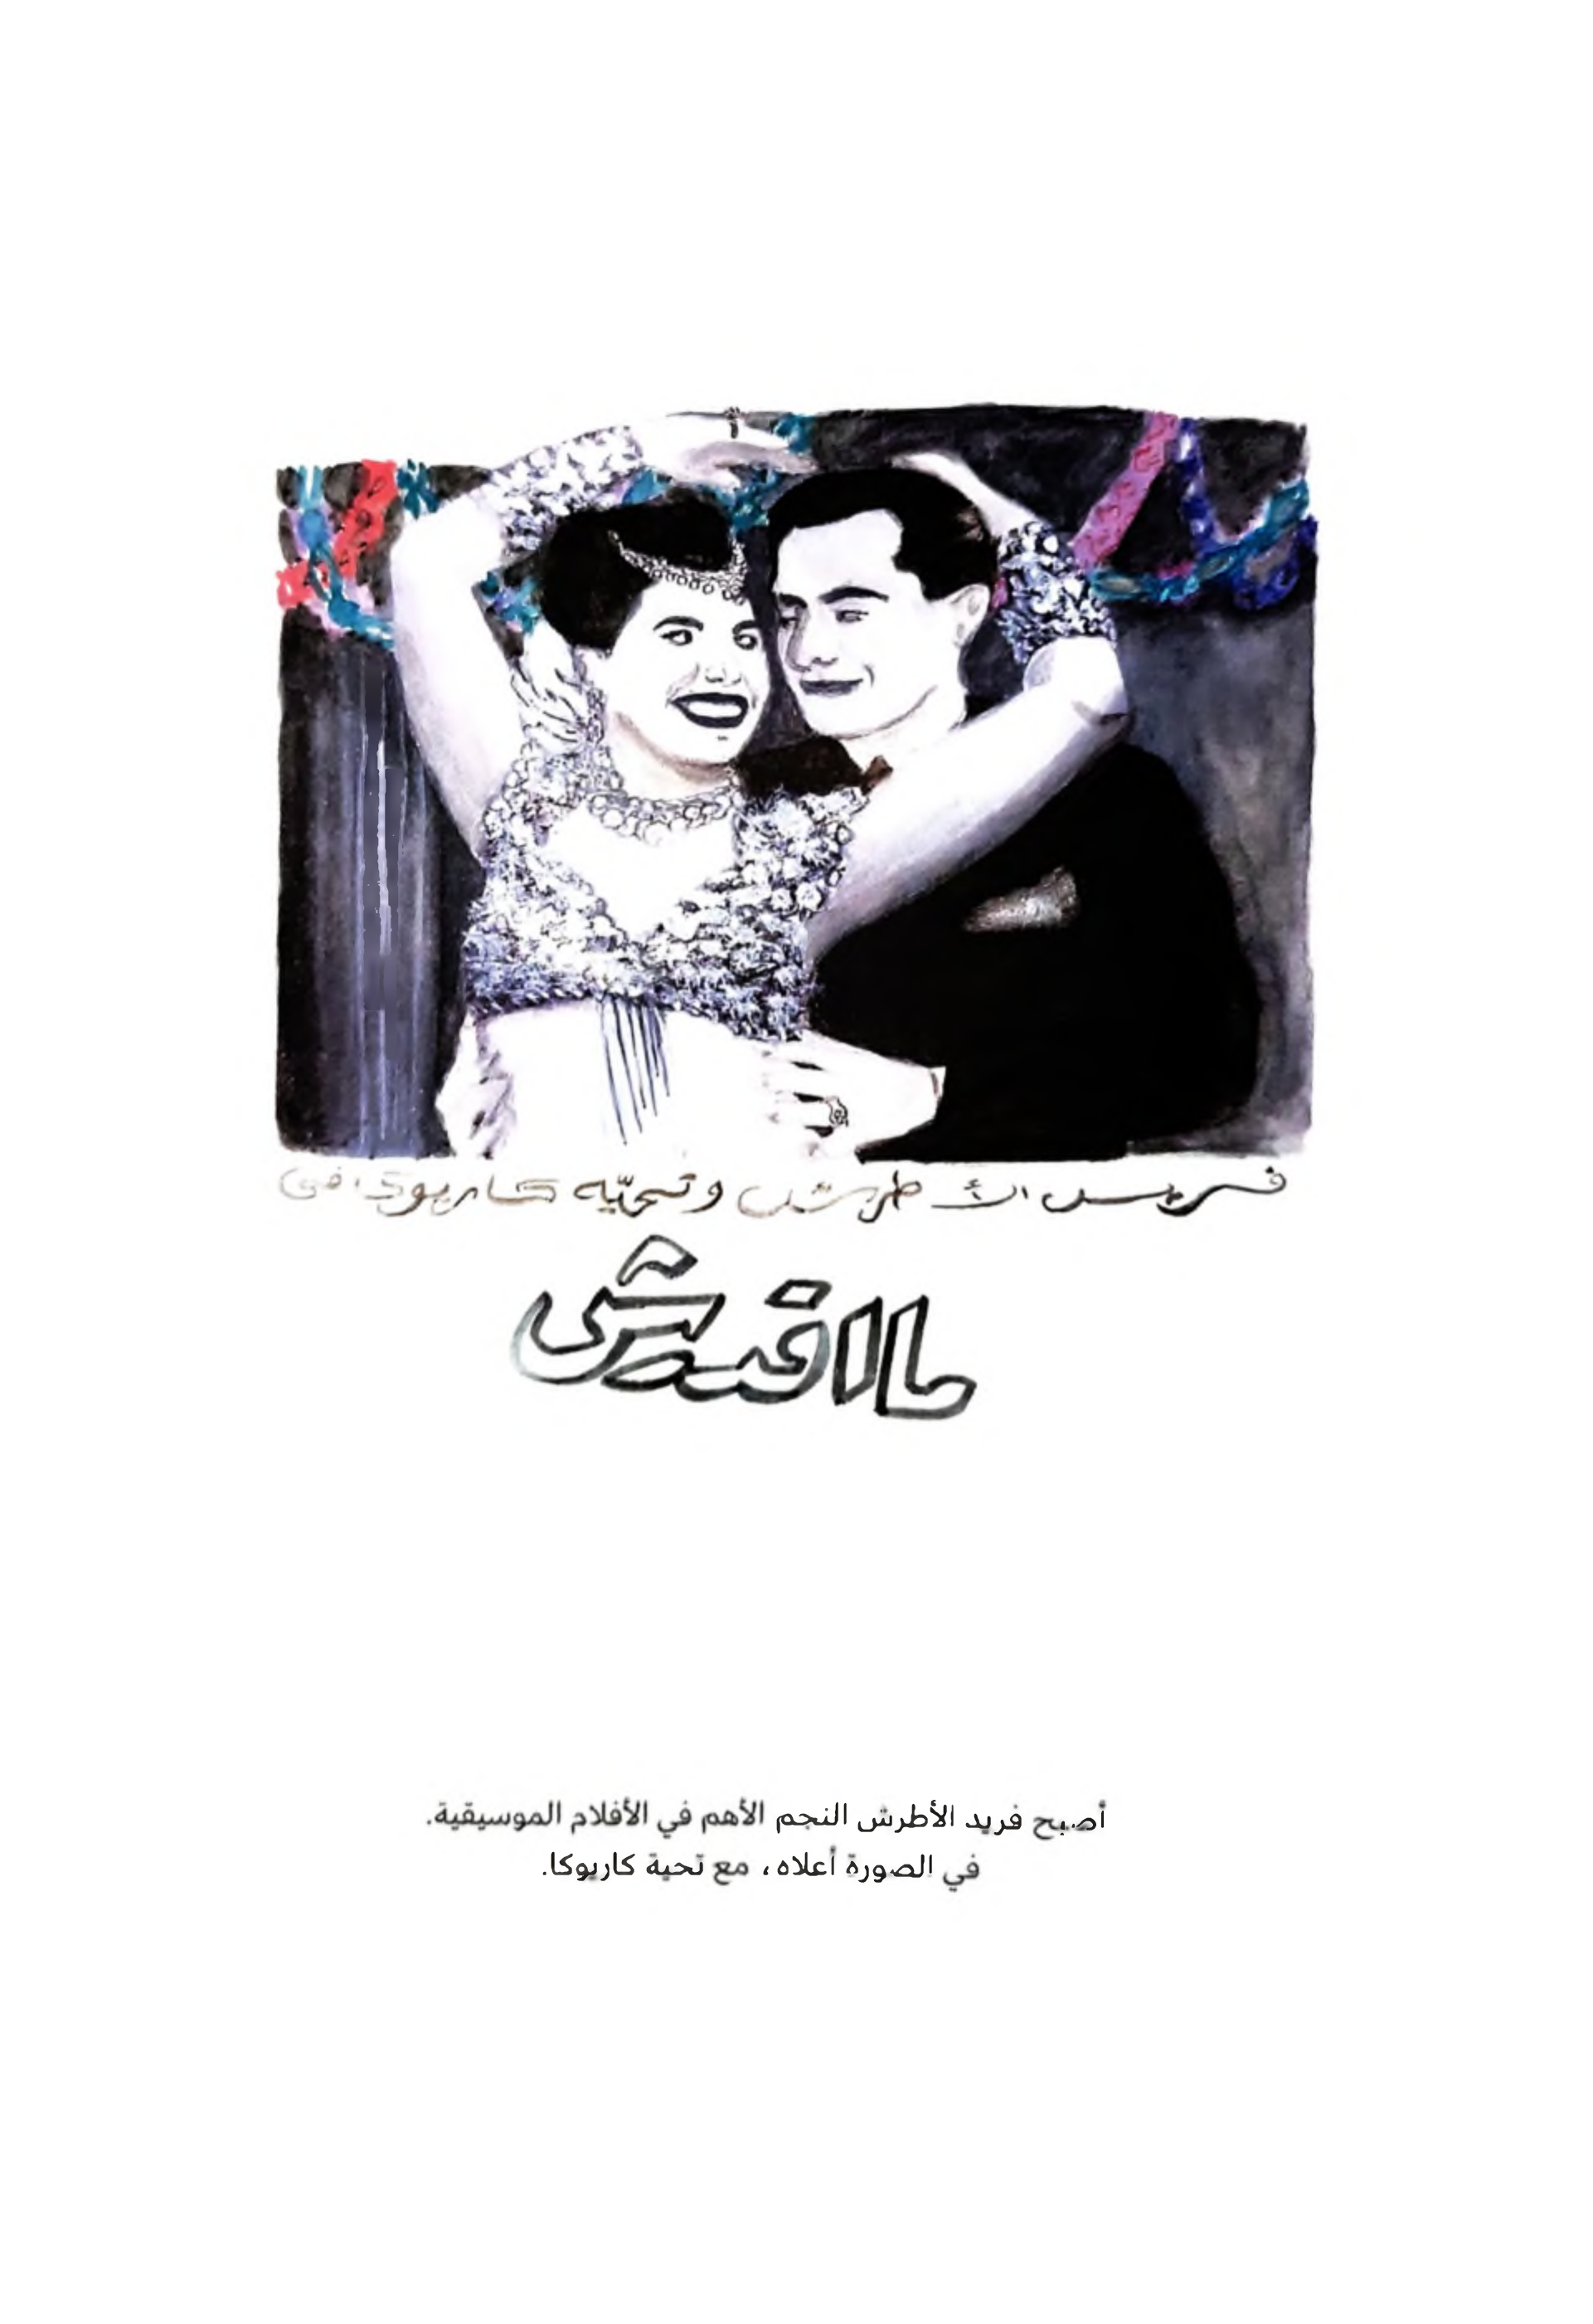 فريد الأطرش وتحيّه كاريوكا في
ما اقدرش
أصبح فريد الأطرش النجم الأهم في الأفلام الموسيقية.
في الصورة أعلاه، مع تحية كاريوكا.